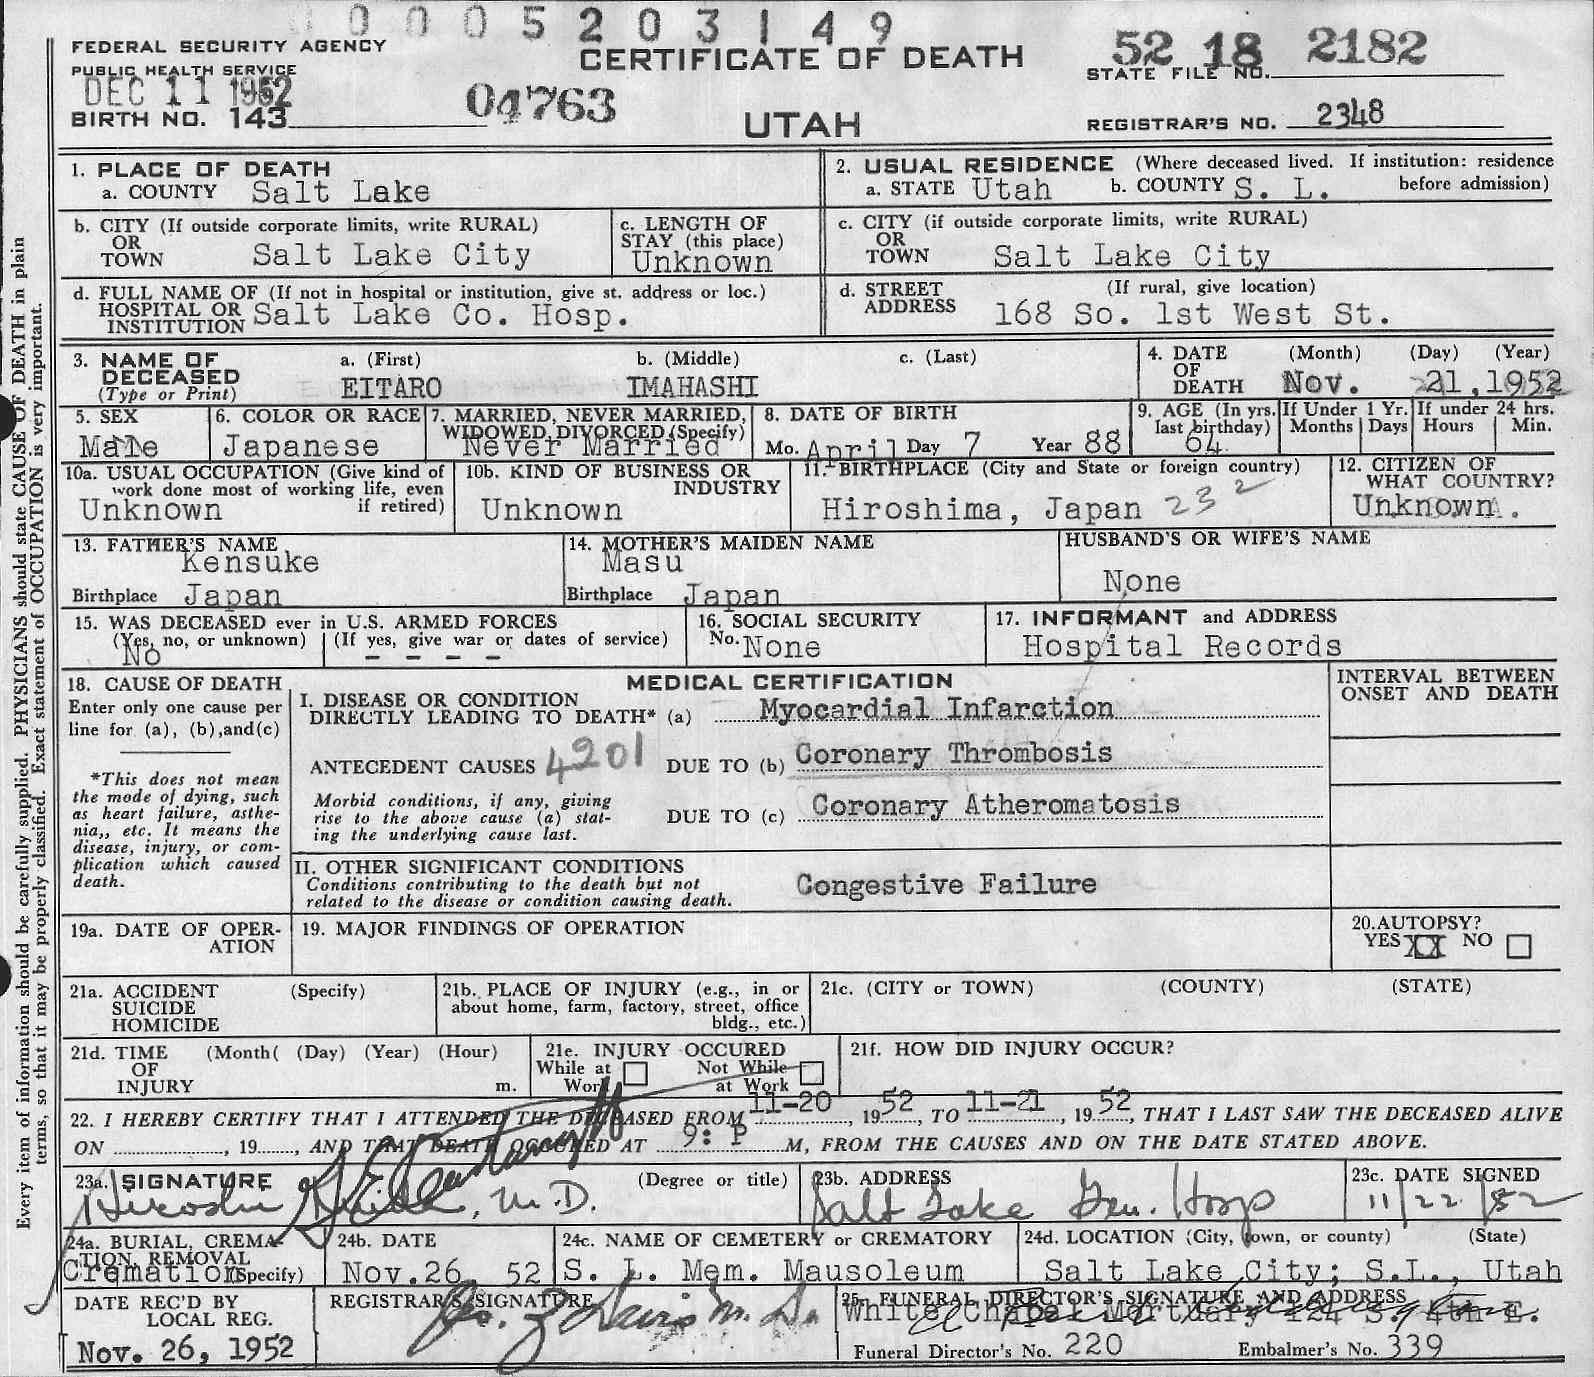 0 0 0 5 2 0 3 1 4 9
FEDERAL SECURITY AGENCY
PUBLIC HEALTH SERVICE
DEC 11 1952
BIRTH NO. 143
04763
CERTIFICATE OF DEATH
UTAH
52 18 2182
STATE FILE NO.
REGISTRAR'S NO. 2348
Every item of information should be carefully supplied. PHYSICIANS should state CAUSE OF DEATH in plain
terms, so that it may be properly classified. Exact statement of OCCUPATION is very important.
1. PLACE OF DEATH
a. COUNTY Salt Lake
2. USUAL RESIDENCE (Where deceased lived. If institution: residence
a. STATE Utah b. COUNTY S. L. before admission)
b. CITY (If outside corporate limits, write RURAL)
OR
TOWN Salt Lake City
c. LENGTH OF
STAY (this place)
Unknown
c. CITY (if outside corporate limits, write RURAL)
OR
TOWN Salt Lake City
d. FULL NAME OF (If not in hospital or institution, give st. address or loc.)
HOSPITAL OR
INSTITUTION Salt Lake Co. Hosp.
d. STREET (If rural, give location)
ADDRESS 168 So. 1st West St.
3. NAME OF
DECEASED
(Type or Print)
a. (First) b. (Middle) c. (Last)
EITARO IMAHASHI
4. DATE
OF
DEATH
(Month) (Day) (Year)
Nov. 21, 1952
5. SEX
Male
6. COLOR OR RACE
Japanese
7. MARRIED, NEVER MARRIED,
WIDOWED, DIVORCED (Specify)
Never Married
8. DATE OF BIRTH
Mo. April Day 7 Year 88
9. AGE (In yrs.
last birthday)
64
If Under 1 Yr.
Months Days
If under 24 hrs.
Hours Min.
10a. USUAL OCCUPATION (Give kind of
work done most of working life, even
if retired)
Unknown
10b. KIND OF BUSINESS OR
INDUSTRY
Unknown
11. BIRTHPLACE (City and State or foreign country)
Hiroshima, Japan 232
12. CITIZEN OF
WHAT COUNTRY?
Unknown.
13. FATHER'S NAME
Kensuke
Birthplace Japan
14. MOTHER'S MAIDEN NAME
Masu
Birthplace Japan
HUSBAND'S OR WIFE'S NAME
None
15. WAS DECEASED ever in U.S. ARMED FORCES
(Yes, no, or unknown) (If yes, give war or dates of service)
No - - - -
16. SOCIAL SECURITY
No. None
17. INFORMANT and ADDRESS
Hospital Records
18. CAUSE OF DEATH
Enter only one cause per
line for (a), (b), and (c)
*This does not mean
the mode of dying, such
as heart failure, asthe-
nia,, etc. It means the
disease, injury, or com-
plication which caused
death.
MEDICAL CERTIFICATION
I. DISEASE OR CONDITION
DIRECTLY LEADING TO DEATH* (a) Myocardial Infarction
ANTECEDENT CAUSES 4201 DUE TO (b) Coronary Thrombosis
Morbid conditions, if any, giving
rise to the above cause (a) stat-
ing the underlying cause last.
DUE TO (c) Coronary Atheromatosis
II. OTHER SIGNIFICANT CONDITIONS
Conditions contributing to the death but not
related to the disease or condition causing death.
Congestive Failure
INTERVAL BETWEEN
ONSET AND DEATH
19a. DATE OF OPER-
ATION
19. MAJOR FINDINGS OF OPERATION
20. AUTOPSY?
YES XX NO
21a. ACCIDENT (Specify)
SUICIDE
HOMICIDE
21b. PLACE OF INJURY (e.g., in or
about home, farm, factory, street, office
bldg., etc.)
21c. (CITY or TOWN) (COUNTY) (STATE)
21d. TIME (Month( (Day) (Year) (Hour)
OF
INJURY m.
21e. INJURY OCCURED
While at Not While
Work at Work
21f. HOW DID INJURY OCCUR?
22. I HEREBY CERTIFY THAT I ATTENDED THE DECEASED FROM 11-20, 1952, TO 11-21, 1952, THAT I LAST SAW THE DECEASED ALIVE
ON ............, 19......, AND THAT DEATH OCCURED AT 9: P M, FROM THE CAUSES AND ON THE DATE STATED ABOVE.
23a. SIGNATURE (Degree or title)
Hiroshi M.D.
23b. ADDRESS
Salt Lake Gen. Hosp
23c. DATE SIGNED
11/22/52
24a. BURIAL, CREMA-
TION, REMOVAL
(Specify)
Cremation
24b. DATE
Nov. 26, 52
24c. NAME OF CEMETERY or CREMATORY
S. L. Mem. Mausoleum
24d. LOCATION (City, town, or county) (State)
Salt Lake City; S.L., Utah
DATE REC'D BY
LOCAL REG.
Nov. 26, 1952
REGISTRAR'S SIGNATURE
Davis M. D.
25. FUNERAL DIRECTOR'S SIGNATURE AND ADDRESS
White Chapel Mortuary 124 S. 4th E.
Funeral Director's No. 220 Embalmer's No. 339